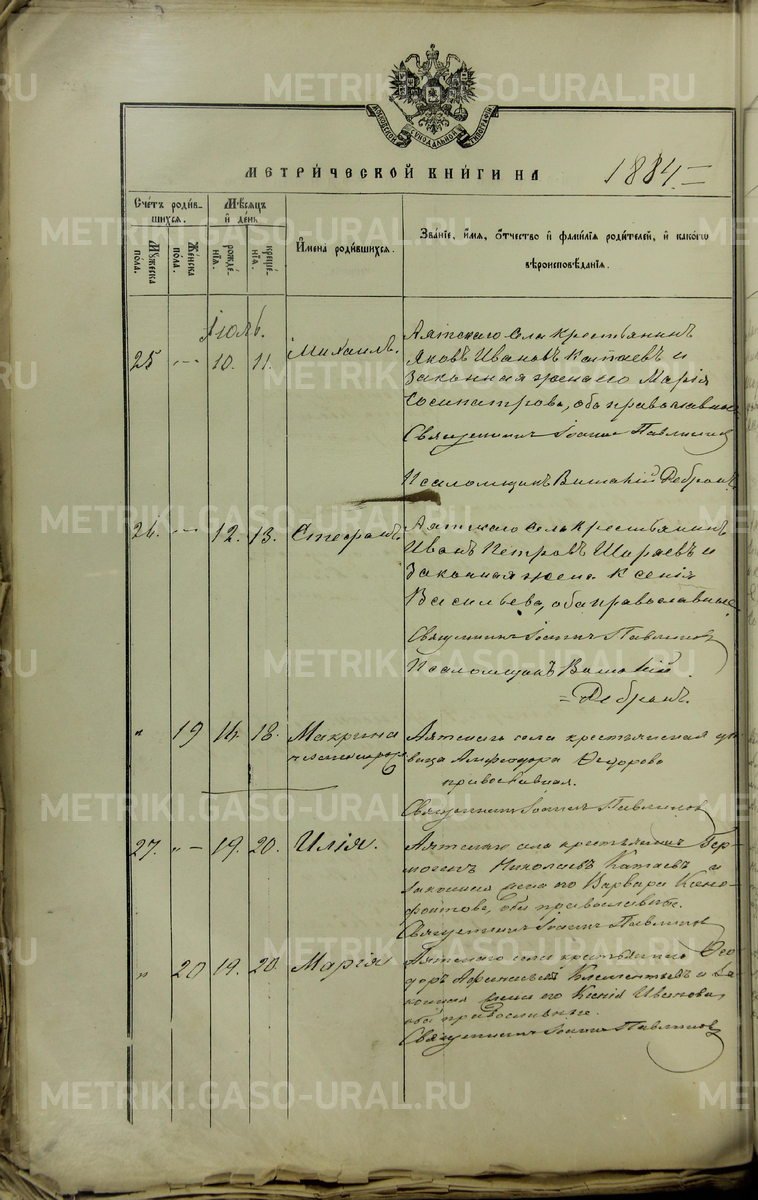 МОСКОВСКОЙ СѴНОДАЛЬНОЙ ТИПОГРАФІИ
МЕТРИ́ЧЕСКОЙ КНИ́ГИ НА 1884.
Сче́тъ роди́вшихся.
Мѣ́сяцъ и҆ де́нь
Мꙋ́жеска по́ла.
Же́нска по́ла.
рожде́нїѧ.
креще́нїѧ.
И҆мена роди́вшихся.
Зва́нїе, и҆́мя, о҆́тчество и҆ фами́лїѧ роди́телей, и҆ како́гѡ вѣроисповѣ́данїѧ.
Іюль.
25 — 10. 11. Михаилъ.
Аятскаго села крестьянинъ
Яковъ Ивановъ Катаевъ и
законная жена его Марія
Сосипатрова, оба православные
Священникъ Іоаннъ Павлинов
Псаломщикъ Виталій
26. — 12. 13. Стефанъ.
Аятскаго села крестьянинъ
Иванъ Петровъ Шараевъ и
законная жена Ксенія
Васильева, оба православные.
Священникъ Іоаннъ Павлинов
Псаломщикъ Виталій
" 19 18. Макрина
незаконнорожд
Аятскаго села крестьянская дѣ
вица Ѳедорова
православная.
Священникъ Іоаннъ Павлинов
27. " — 19. 20. Илія.
Аятскаго села крестьянинъ Гер
могенъ Николаевъ Катаевъ и
законная жена его Варвара Ксено
фонтова, оба православные.
Священникъ Іоаннъ Павлинов
" 20 19. 20. Марія
Аятскаго села крестьянинъ Ѳео
доръ Афанасьевъ Клементьевъ и за
конная жена его Ксенія Иванова
оба православные.
Священникъ Іоаннъ Павлинов
METRIKI.GASO-URAL.RU